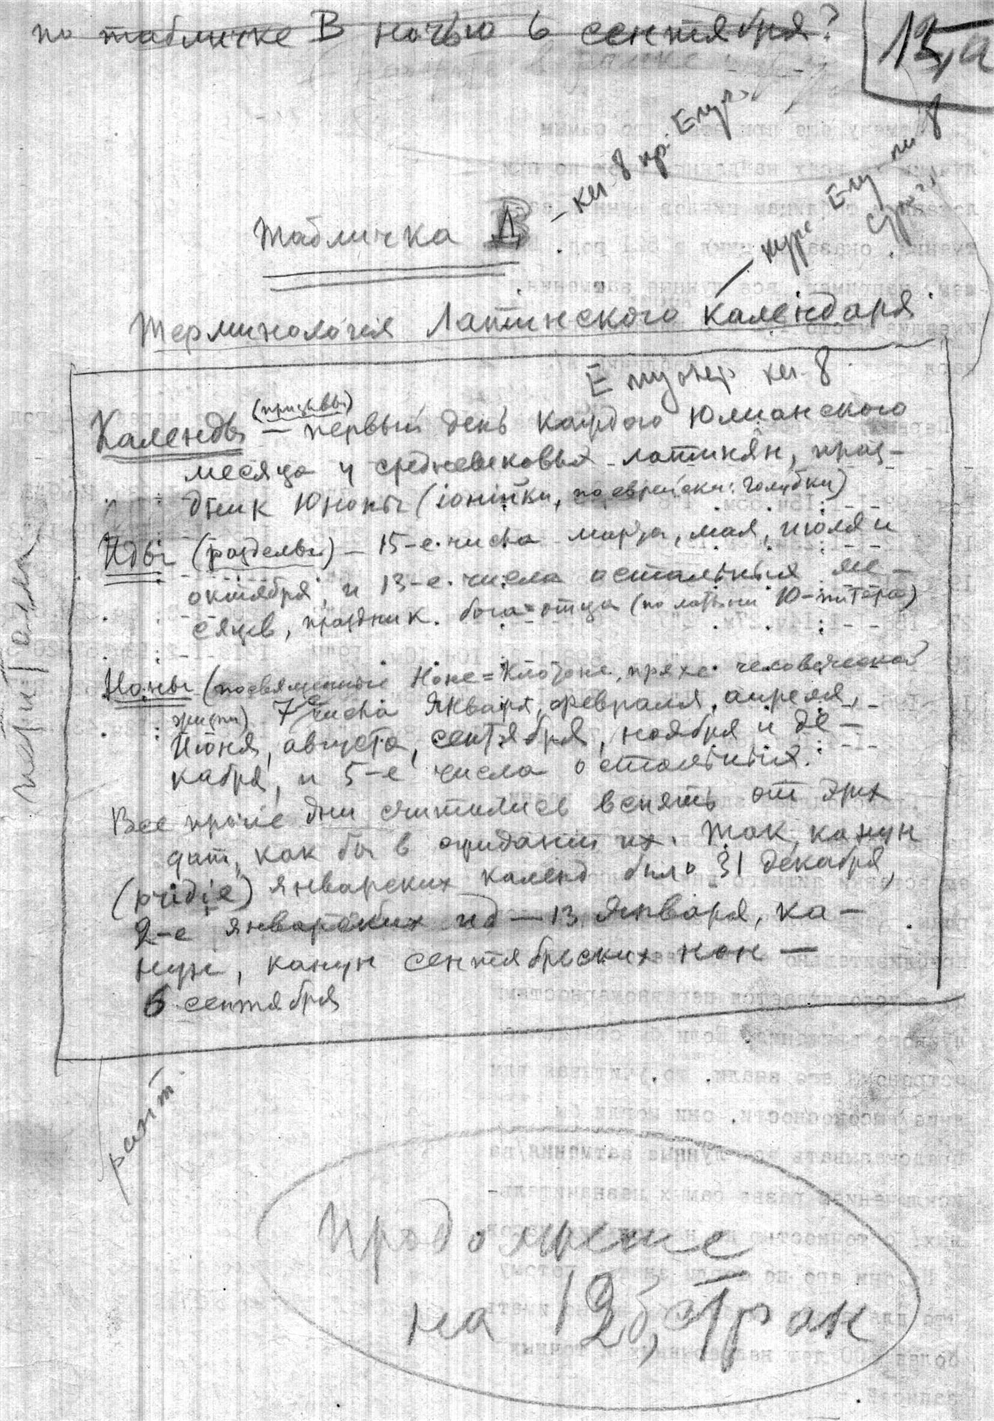 по табличке В ночью 6 сентября?
15,а
Табличка Д
– кг. 8 пр.
Терминологія Латинского календаря
кг. 8
(призывы)
Календы — первый день каждого Юлианского
месяца у средневековых латинян, праз-
дник Юноны (іонійки, по еврейски: голубки)
Иды (разделы) — 15-е числа марта, мая, июля и
октября, и 13-е числа остальных ме-
сяцев, праздник бога-отца (по латыни Ю-питера)
Ноны (посвященные Ноне = Клотоне, пряхе человеческой
жизни) 7е числа Января, февраля, апреля,
Июня, августа, сентября, ноября и де-
кабря, и 5-е числа остальных.
Все прочіе дни считались вспять от этих
дат, как бы в ожиданіи их. Так, канун
(pridie) январских календ было 31 декабря,
2-е январских ид — 13 Января, ка-
нун, канун сентябрьских нон —
6 сентября
петит
Продолжение
на 12б, стран